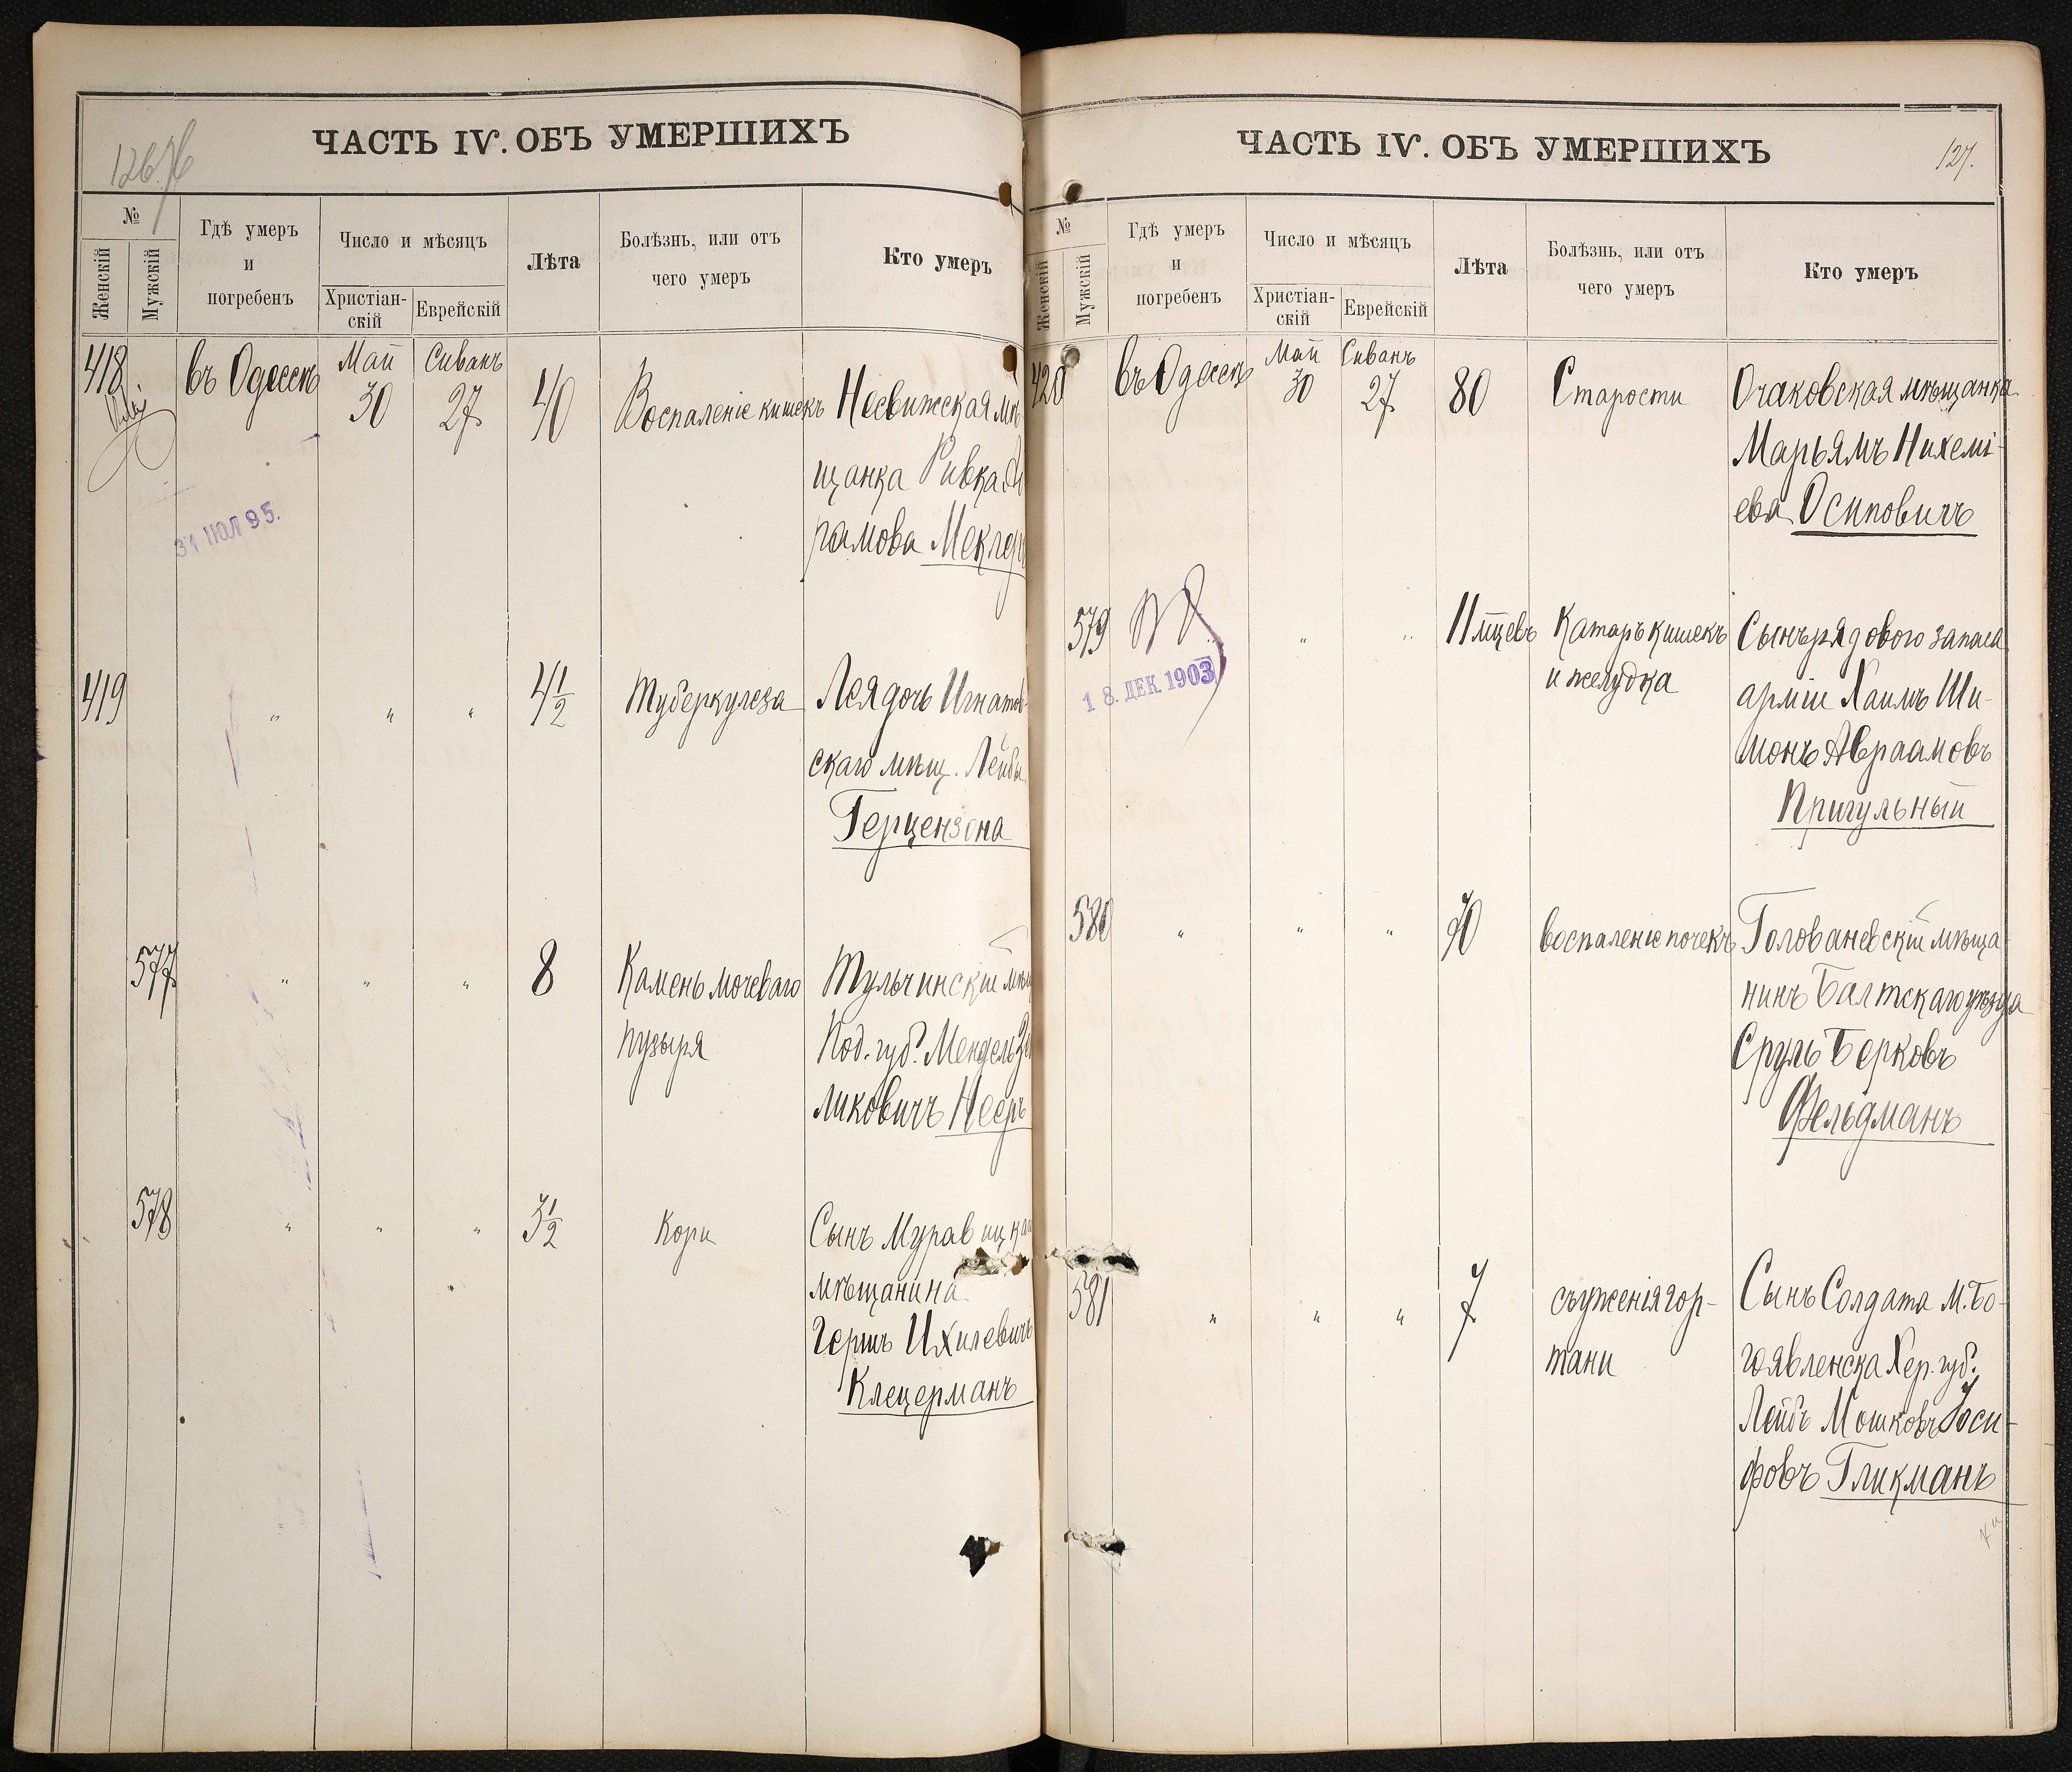 126
ЧАСТЬ IV. ОБЪ УМЕРШИХЪ
№
Женскій
Мужскій
Гдѣ умеръ
и
погребенъ
Число и мѣсяцъ
Христіан-
скій
Еврейскій
Лѣта
Болѣзнь, или отъ
чего умеръ
Кто умеръ
418
въ Одессѣ
Май
30
Сиванъ
27
40
Воспаленіе кишекъ
Несвижская мѣ
щанка Ривка
рамова Меклер
31 ІЮЛ 95.
419
" " "
4 1/2
Туберкулеза
Лея дочь Игнатов-
скаго мѣщ. Лейбы
Герцензона
577
" " "
8
Камень мочеваго
пузыря
Тульчинскій мѣщ
Под. губ. Мендель Зе
ликовичъ Нееръ
578
" " "
3 1/2
Кори
Сынъ Муравицкаго
мѣщанина
Гершъ Ихилевичъ
Клецерманъ
127.
ЧАСТЬ IV. ОБЪ УМЕРШИХЪ
№
Женскій
Мужскій
Гдѣ умеръ
и
погребенъ
Число и мѣсяцъ
Христіан-
скій
Еврейскій
Лѣта
Болѣзнь, или отъ
чего умеръ
Кто умеръ
420
въ Одессѣ
Май
30
Сиванъ
27
80
Старости
Очаковская мѣщанка
Марьямъ Нихемі-
ева Осиповичъ
579
18. ДЕК. 1903
" "
11 мцевъ
Катаръ кишекъ
и желудка
Сынъ рядового запаса
арміи Хаимъ Ши-
монъ Авраамовъ
Пригульный
580
" " "
70
воспаленіе почекъ
Голованевскій мѣща-
нинъ Балтскаго уѣзда
Сруль Берковъ
Фельдманъ
581
" " "
7
съуженія гор-
тани
Сынъ Солдата м. Бо-
гоявленска Хер. губ.
Лейбъ Мошковъ Іоси-
фовъ Гликманъ